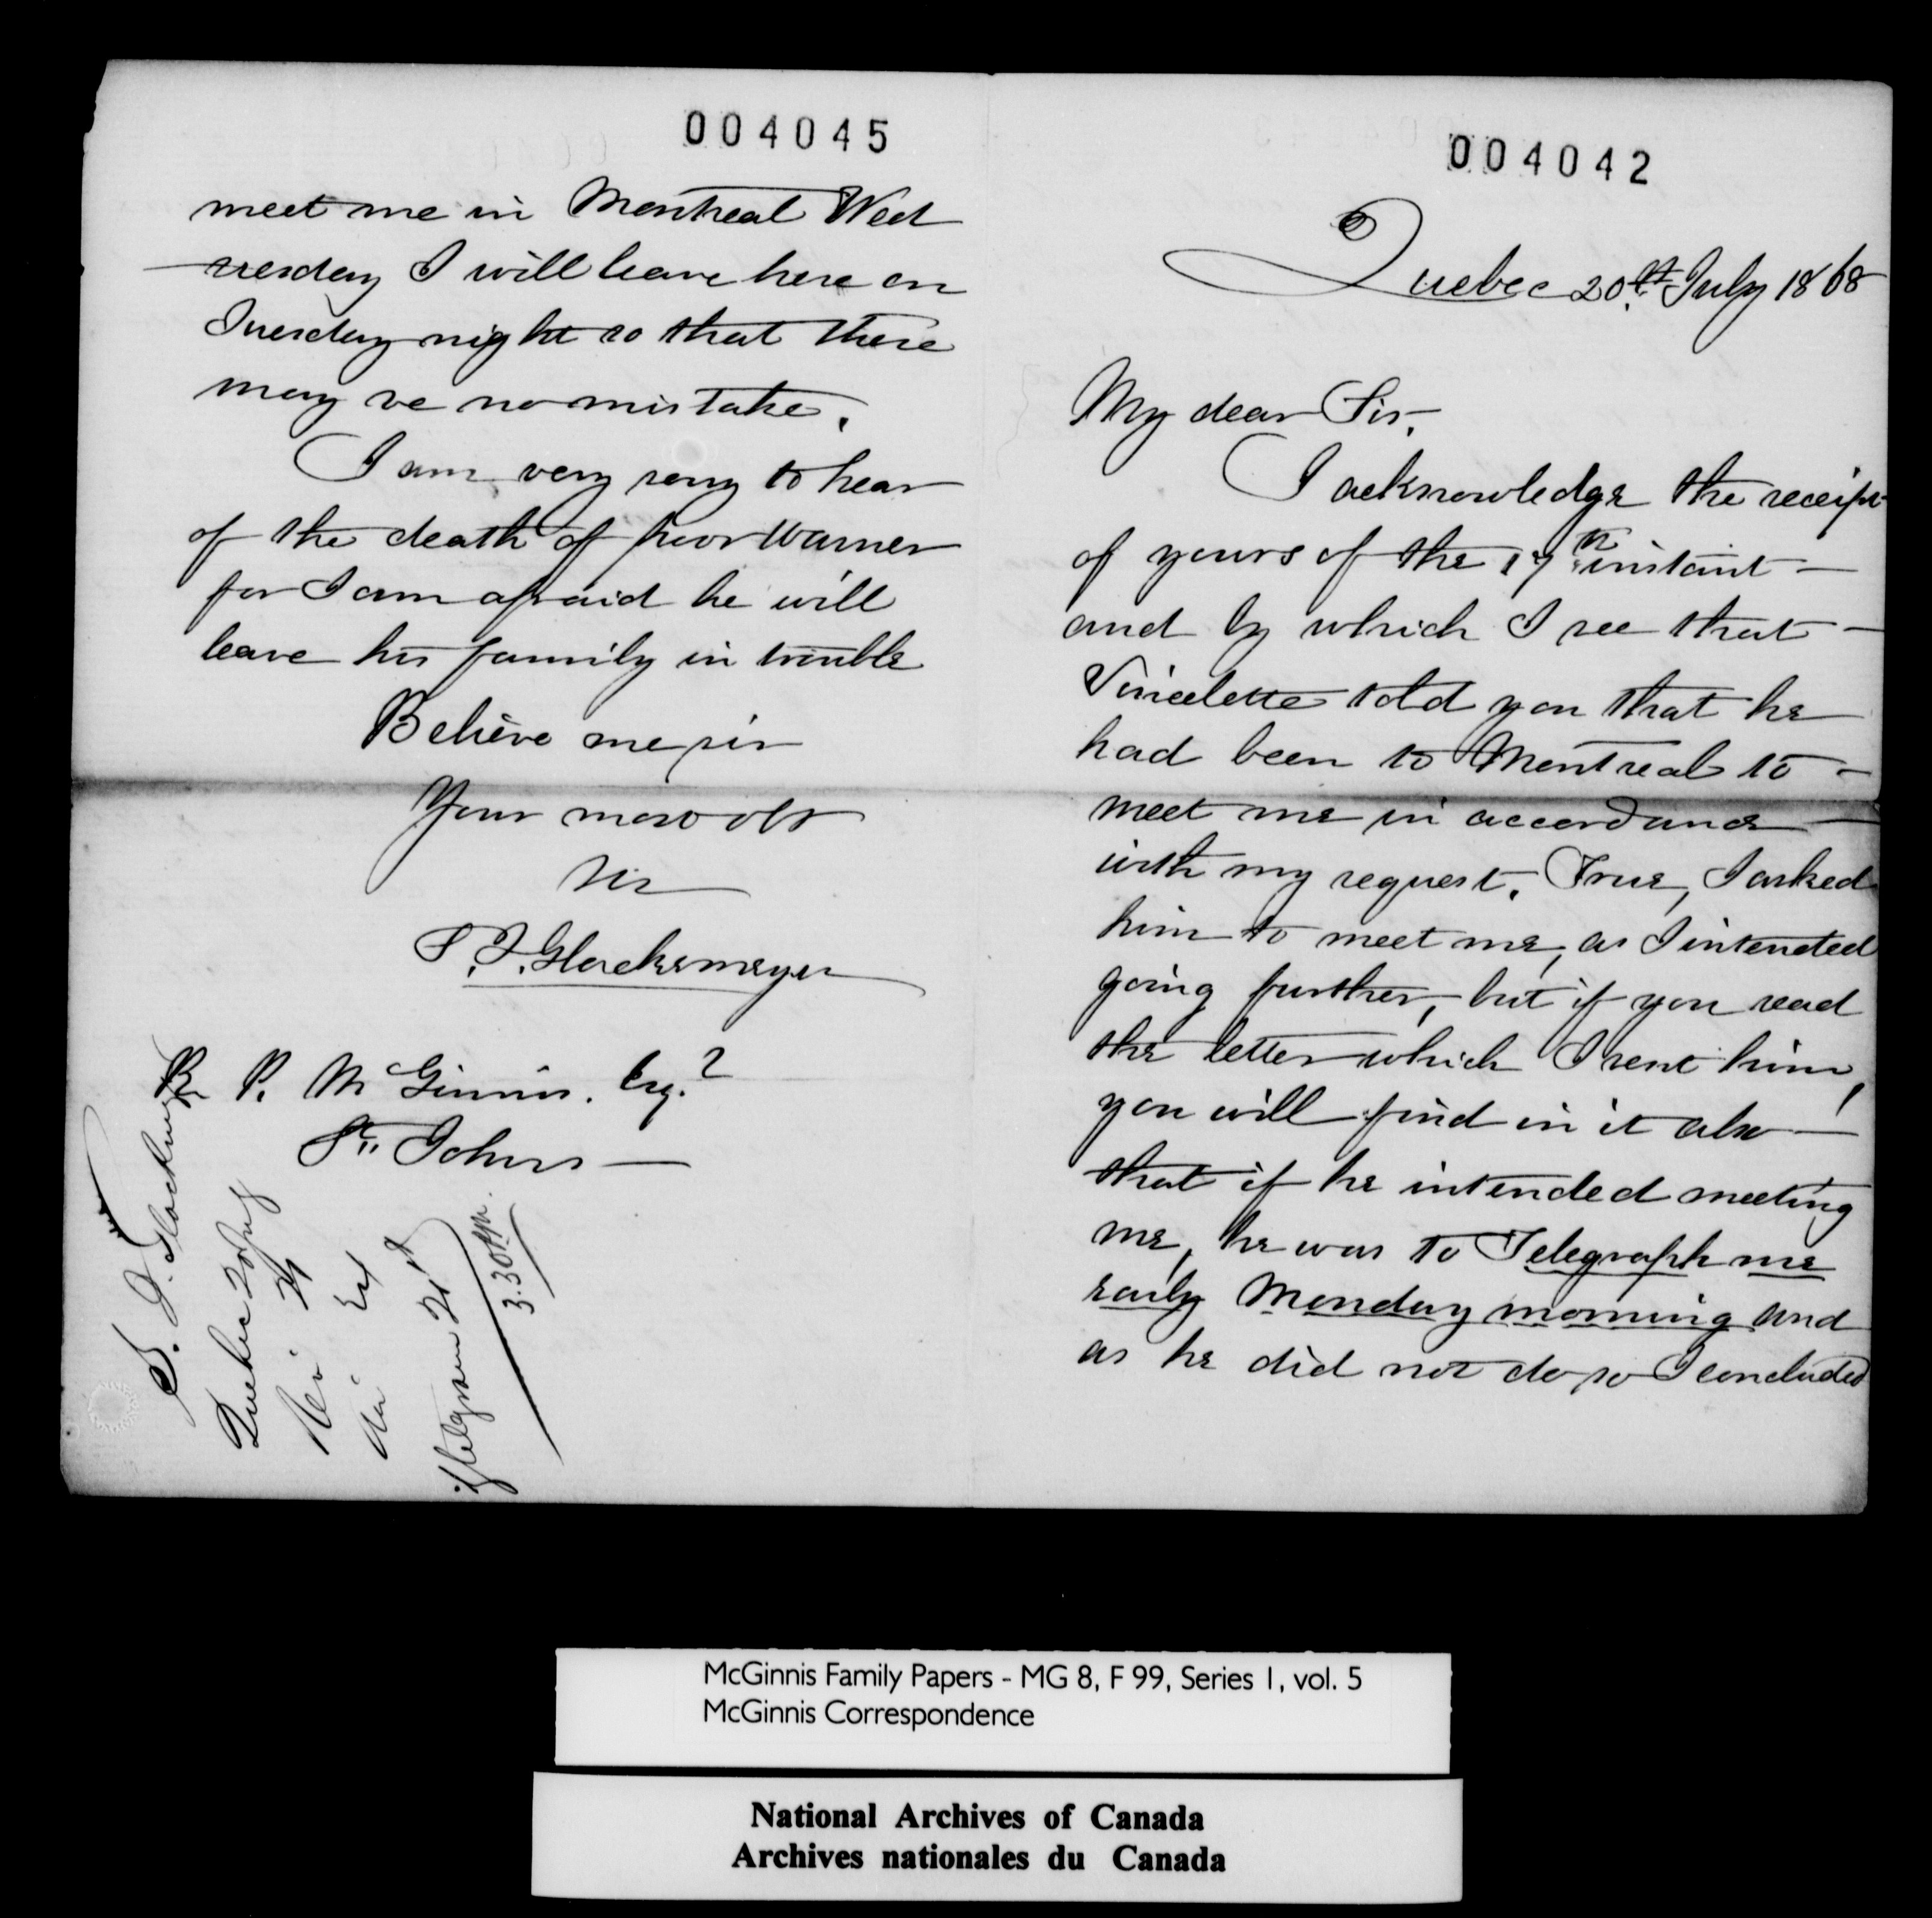 004045
meet me in Montreal Wed
nesday I will leave here on
Tuesday night so that there
may be no mistake.
I am very sorry to hear
of the death of poor Warner
for I am afraid he will
leave his family in trouble
Believe me sir
Your most obt
P. McGinnis. Esq.
St. Johns
Quebec 20 July
Telegram 21st
3.30 PM.
004042
Quebec 20th July 1868
My dear Sir,
I acknowledge the receipt
of yours of the 17th instant
and by which I see that
Vincelette told you that he
had been to Montreal to
meet me in accordance
with my request. True, I asked
him to meet me, as I intended
going further, but if you read
the letter which I sent him,
you will find in it also
that if he intended meeting
me, he was to Telegraph me
early Monday morning and
as he did not do so I concluded
McGinnis Family Papers - MG 8, F 99, Series 1, vol. 5
McGinnis Correspondence
National Archives of Canada
Archives nationales du Canada